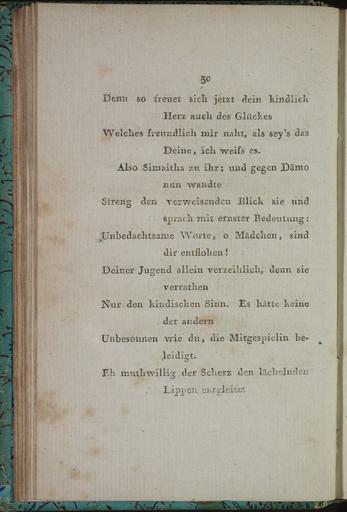 30
Denn so freuet sich jetzt dein kindlich
Herz auch des Glückes
Welches freundlich mir naht, als sey's das
Deine, ich weiſs es.
Also Simaitha zu ihr; und gegen Dämo
nun wandte
Streng den verweisenden Blick sie und
sprach mit ernster Bedeutung:
Unbedachtsame Worte, o Mädchen, sind
dir entflohen!
Deiner Jugend allein verzeihlich, denn sie
verrathen
Nur den kindischen Sinn. Es hätte keine
der andern
Unbesonnen wie du, die Mitgespielin be-
leidigt.
Eh muthwillig der Scherz den lächelnden
Lippen entgleitet